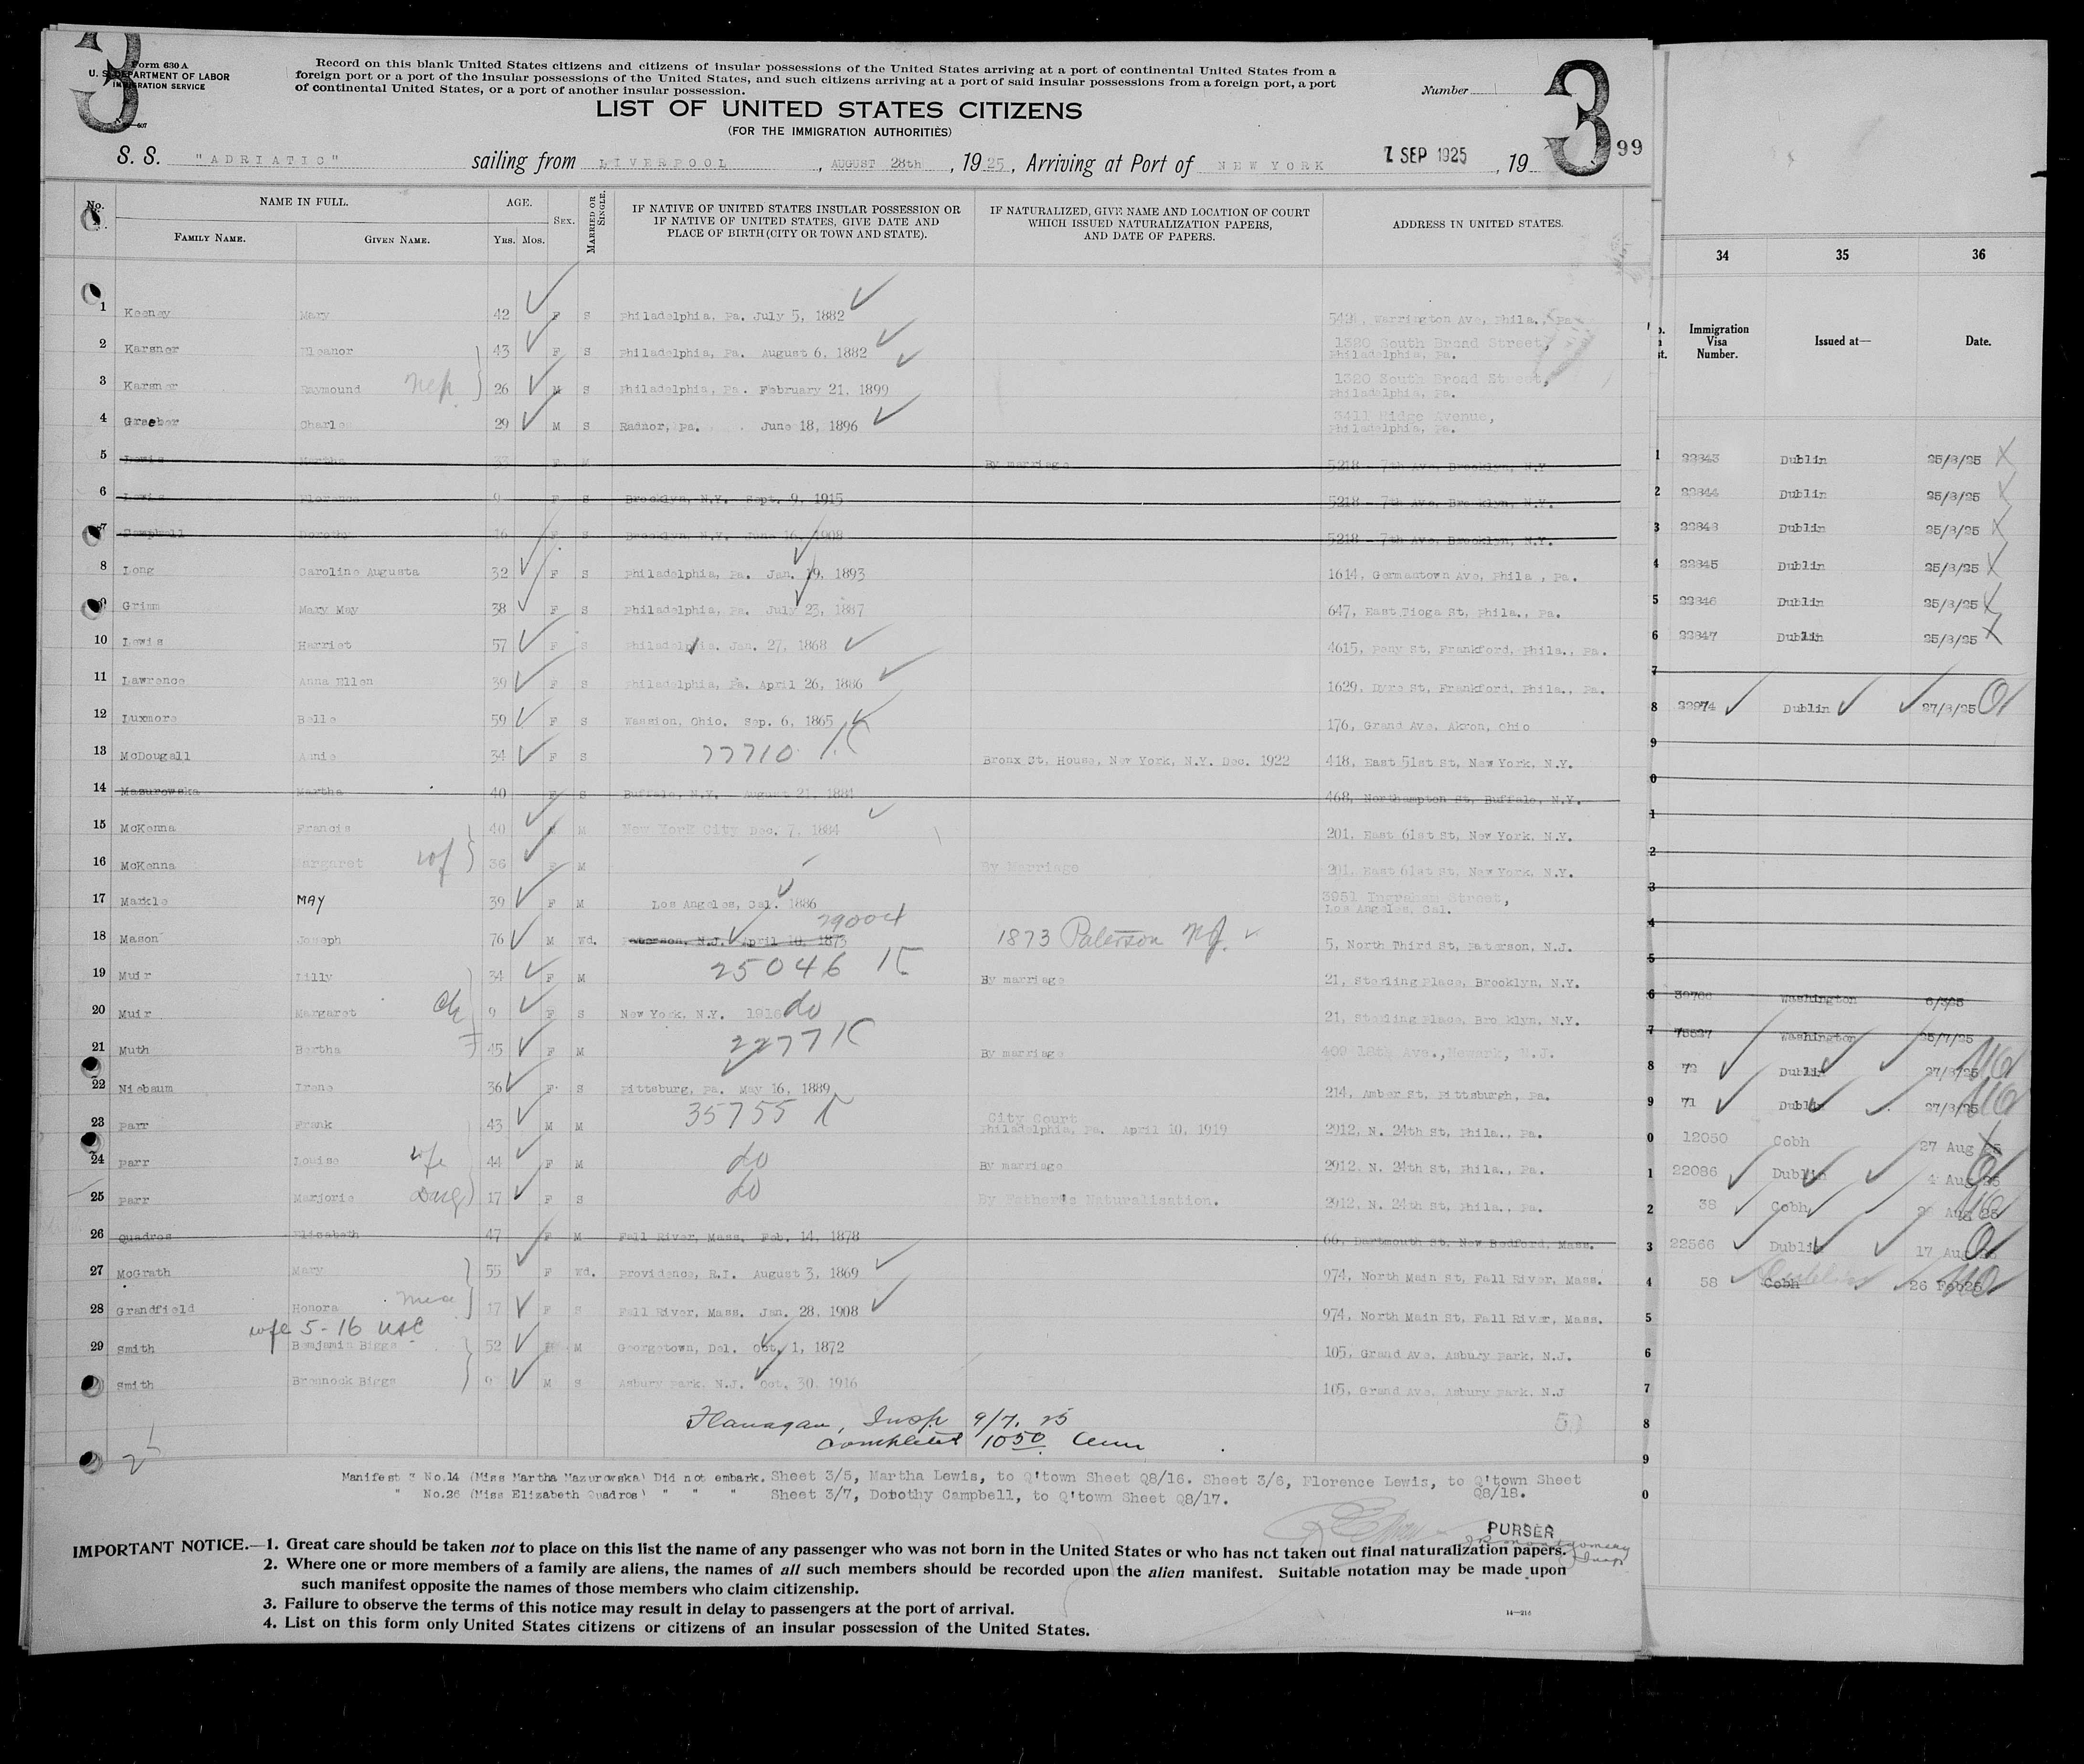 3
Form 630 A
U. S. DEPARTMENT OF LABOR
IMMIGRATION SERVICE
Record on this blank United States citizens and citizens of insular possessions of the United States arriving at a port of continental United States from a
foreign port or a port of the insular possessions of the United States, and such citizens arriving at a port of said insular possessions from a foreign port, a port
of continental United States, or a port of another insular possession.
Number
3
99
LIST OF UNITED STATES CITIZENS
(FOR THE IMMIGRATION AUTHORITIES)
S. S. "ADRIATIC" sailing from LIVERPOOL, AUGUST 28th, 1925, Arriving at Port of NEW YORK 7 SEP 1925, 19
No. NAME IN FULL. AGE. SEX. MARRIED OR SINGLE. IF NATIVE OF UNITED STATES INSULAR POSSESSION OR IF NATIVE OF UNITED STATES, GIVE DATE AND PLACE OF BIRTH (CITY OR TOWN AND STATE). IF NATURALIZED, GIVE NAME AND LOCATION OF COURT WHICH ISSUED NATURALIZATION PAPERS, AND DATE OF PAPERS. ADDRESS IN UNITED STATES.
FAMILY NAME. GIVEN NAME. YRS. MOS.
1 Keeney Mary 42 F S Philadelphia, Pa. July 5, 1882 Warrington Ave, Phila., Pa.
2 Karsner Eleanor 43 F S Philadelphia, Pa. August 6, 1882 1320 South Broad Street, Philadelphia, Pa.
3 Karsner Raymound nep 26 M S Philadelphia, Pa. February 21, 1899 1320 South Broad Street, Philadelphia, Pa.
4 Graeber Charle 29 M S Radnor, Pa. June 18, 1896 3411 Ridge Avenue, Philadelphia, Pa.
5 Lewis Martha 33 F M By marriage 5218 - 7th Ave, Brooklyn, N.Y
6 Lewis Florence 9 F S Brooklyn, N.Y. Sept. 9, 1915 5218 - 7th Ave, Brooklyn, N.Y.
7 Campbell Dorothy 16 F S Brooklyn, N.Y. June 16, 1908 5218 - 7th Ave, Brooklyn, N.Y.
8 Long Caroline Augusta 32 F S Philadelphia, Pa. Jan. 19, 1893 1614, Germantown Ave, Phila, Pa.
9 Grimm Mary May 38 F S Philadelphia, Pa. July 23, 1887 647, East Tioga St, Phila., Pa.
10 Lewis Harriet 57 F S Philadelphia. Jan. 27, 1868 4615, Penn St, Frankford, Phila., Pa.
11 Lawrence Anna Ellen 39 F S Philadelphia, Pa. April 26, 1886 1629, Dyre St, Frankford, Phila., Pa.
12 Luxmore Belle 59 F S Ohio. Sep. 6, 1865 176, Grand Ave. Akron, Ohio
13 McDougall Annie 34 F S 77710 Bronx Ct. House, New York, N.Y. Dec. 1922 418, East 51st St, New York, N.Y.
14 Masurowska Martha 40 F S Buffalo, N.Y. August 21, 1884 468, Northampton St, Buffalo, N.Y.
15 McKenna Francis 40 M New York City Dec. 7, 1884 201, East 61st St, New York, N.Y.
16 McKenna Margaret wf 36 F M By Marriage 201, East 61st St, New York, N.Y.
17 Markle MAY 39 F M Los Angeles, Cal. 1886 3951 Ingraham Street, Los Angeles, Cal.
18 Mason Joseph 76 M Wd. Paterson, N.J. April 10, 1873 29004 1873 Paterson NJ. 5, North Third St, Paterson, N.J.
19 Muir Lilly 34 F M 25046 By marriage 21, Sterling Place, Brooklyn, N.Y.
20 Muir Margaret ch 9 F S New York, N.Y. 1916 do 21, Sterling Place, Brooklyn, N.Y.
21 Muth Bertha 45 F M 2277 By marriage 400 18th Ave., Newark, N.J.
22 Niebaum Irene 36 F S Pittsburg, Pa. May 16, 1889 214, Amber St, Pittsburgh, Pa.
23 Parr Frank 43 M M 35755 City Court Philadelphia, Pa. April 10, 1919 2912, N. 24th St, Phila., Pa.
24 Parr Louise wfe 44 F M do By marriage 2912, N. 24th St, Phila., Pa.
25 Parr Marjorie Daug 17 F S do By Father's Naturalisation. 2912, N. 24th St, Phila., Pa.
26 Quadros Elizabeth 47 F M Fall River, Mass. Feb. 14, 1878 66, Dartmouth St. New Bedford, Mass.
27 McGrath Mary 55 F Wd. Providence, R.I. August 3, 1869 974, North Main St, Fall River, Mass.
28 Grandfield Honora niece 17 F S Fall River, Mass. Jan. 28, 1908 974, North Main St, Fall River, Mass.
wfe 5-16 USC
29 Smith Benjamin Biggs 52 M Georgetown, Del. Oct. 1, 1872 105, Grand Ave. Asbury Park, N.J.
Smith Biggs 9 M S Asbury Park, N.J. Oct. 30, 1916 105, Grand Ave, Asbury Park, N.J
Flanagan, Insp 9/7. 25
Completed 1050
Manifest 3 No.14 (Miss Martha Mazurowska) Did not embark. Sheet 3/5, Martha Lewis, to Q'town Sheet Q8/16. Sheet 3/6, Florence Lewis, to Q'town Sheet Q8/18.
" No.26 (Miss Elizabeth Quadros) " " " Sheet 3/7, Dorothy Campbell, to Q'town Sheet Q8/17.
PURSER
IMPORTANT NOTICE.—1. Great care should be taken not to place on this list the name of any passenger who was not born in the United States or who has not taken out final naturalization papers.
2. Where one or more members of a family are aliens, the names of all such members should be recorded upon the alien manifest. Suitable notation may be made upon
such manifest opposite the names of those members who claim citizenship.
3. Failure to observe the terms of this notice may result in delay to passengers at the port of arrival.
4. List on this form only United States citizens or citizens of an insular possession of the United States.
14—216
34 35 36
Immigration Visa Number. Issued at— Date.
1 22843 Dublin 25/8/25
2 22844 Dublin 25/8/25
3 22848 Dublin 25/8/25
4 22845 Dublin 25/8/25
5 22846 Dublin 25/8/25
6 22847 Dublin 25/8/25
7
8 22974 Dublin 27/8/25
9
0
1
2
3
4
5
6 Washington
7 Washington 25/7/25
8 72 Dublin 27/8/25
9 71 Dublin 27/8/25
0 12050 Cobh 27 Aug 25
1 22086 Dublin 4 Aug 25
2 38 Cobh Aug 25
3 22566 Dublin 17 Aug
4 58 Cobh Dublin 26 Feb25
5
6
7
8
9
0